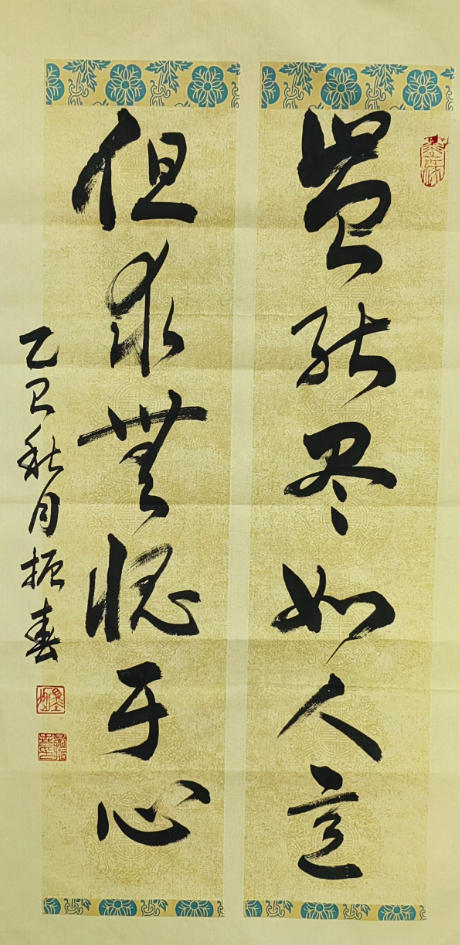 岂能尽如人意
但求無愧于心
乙巳秋月振春